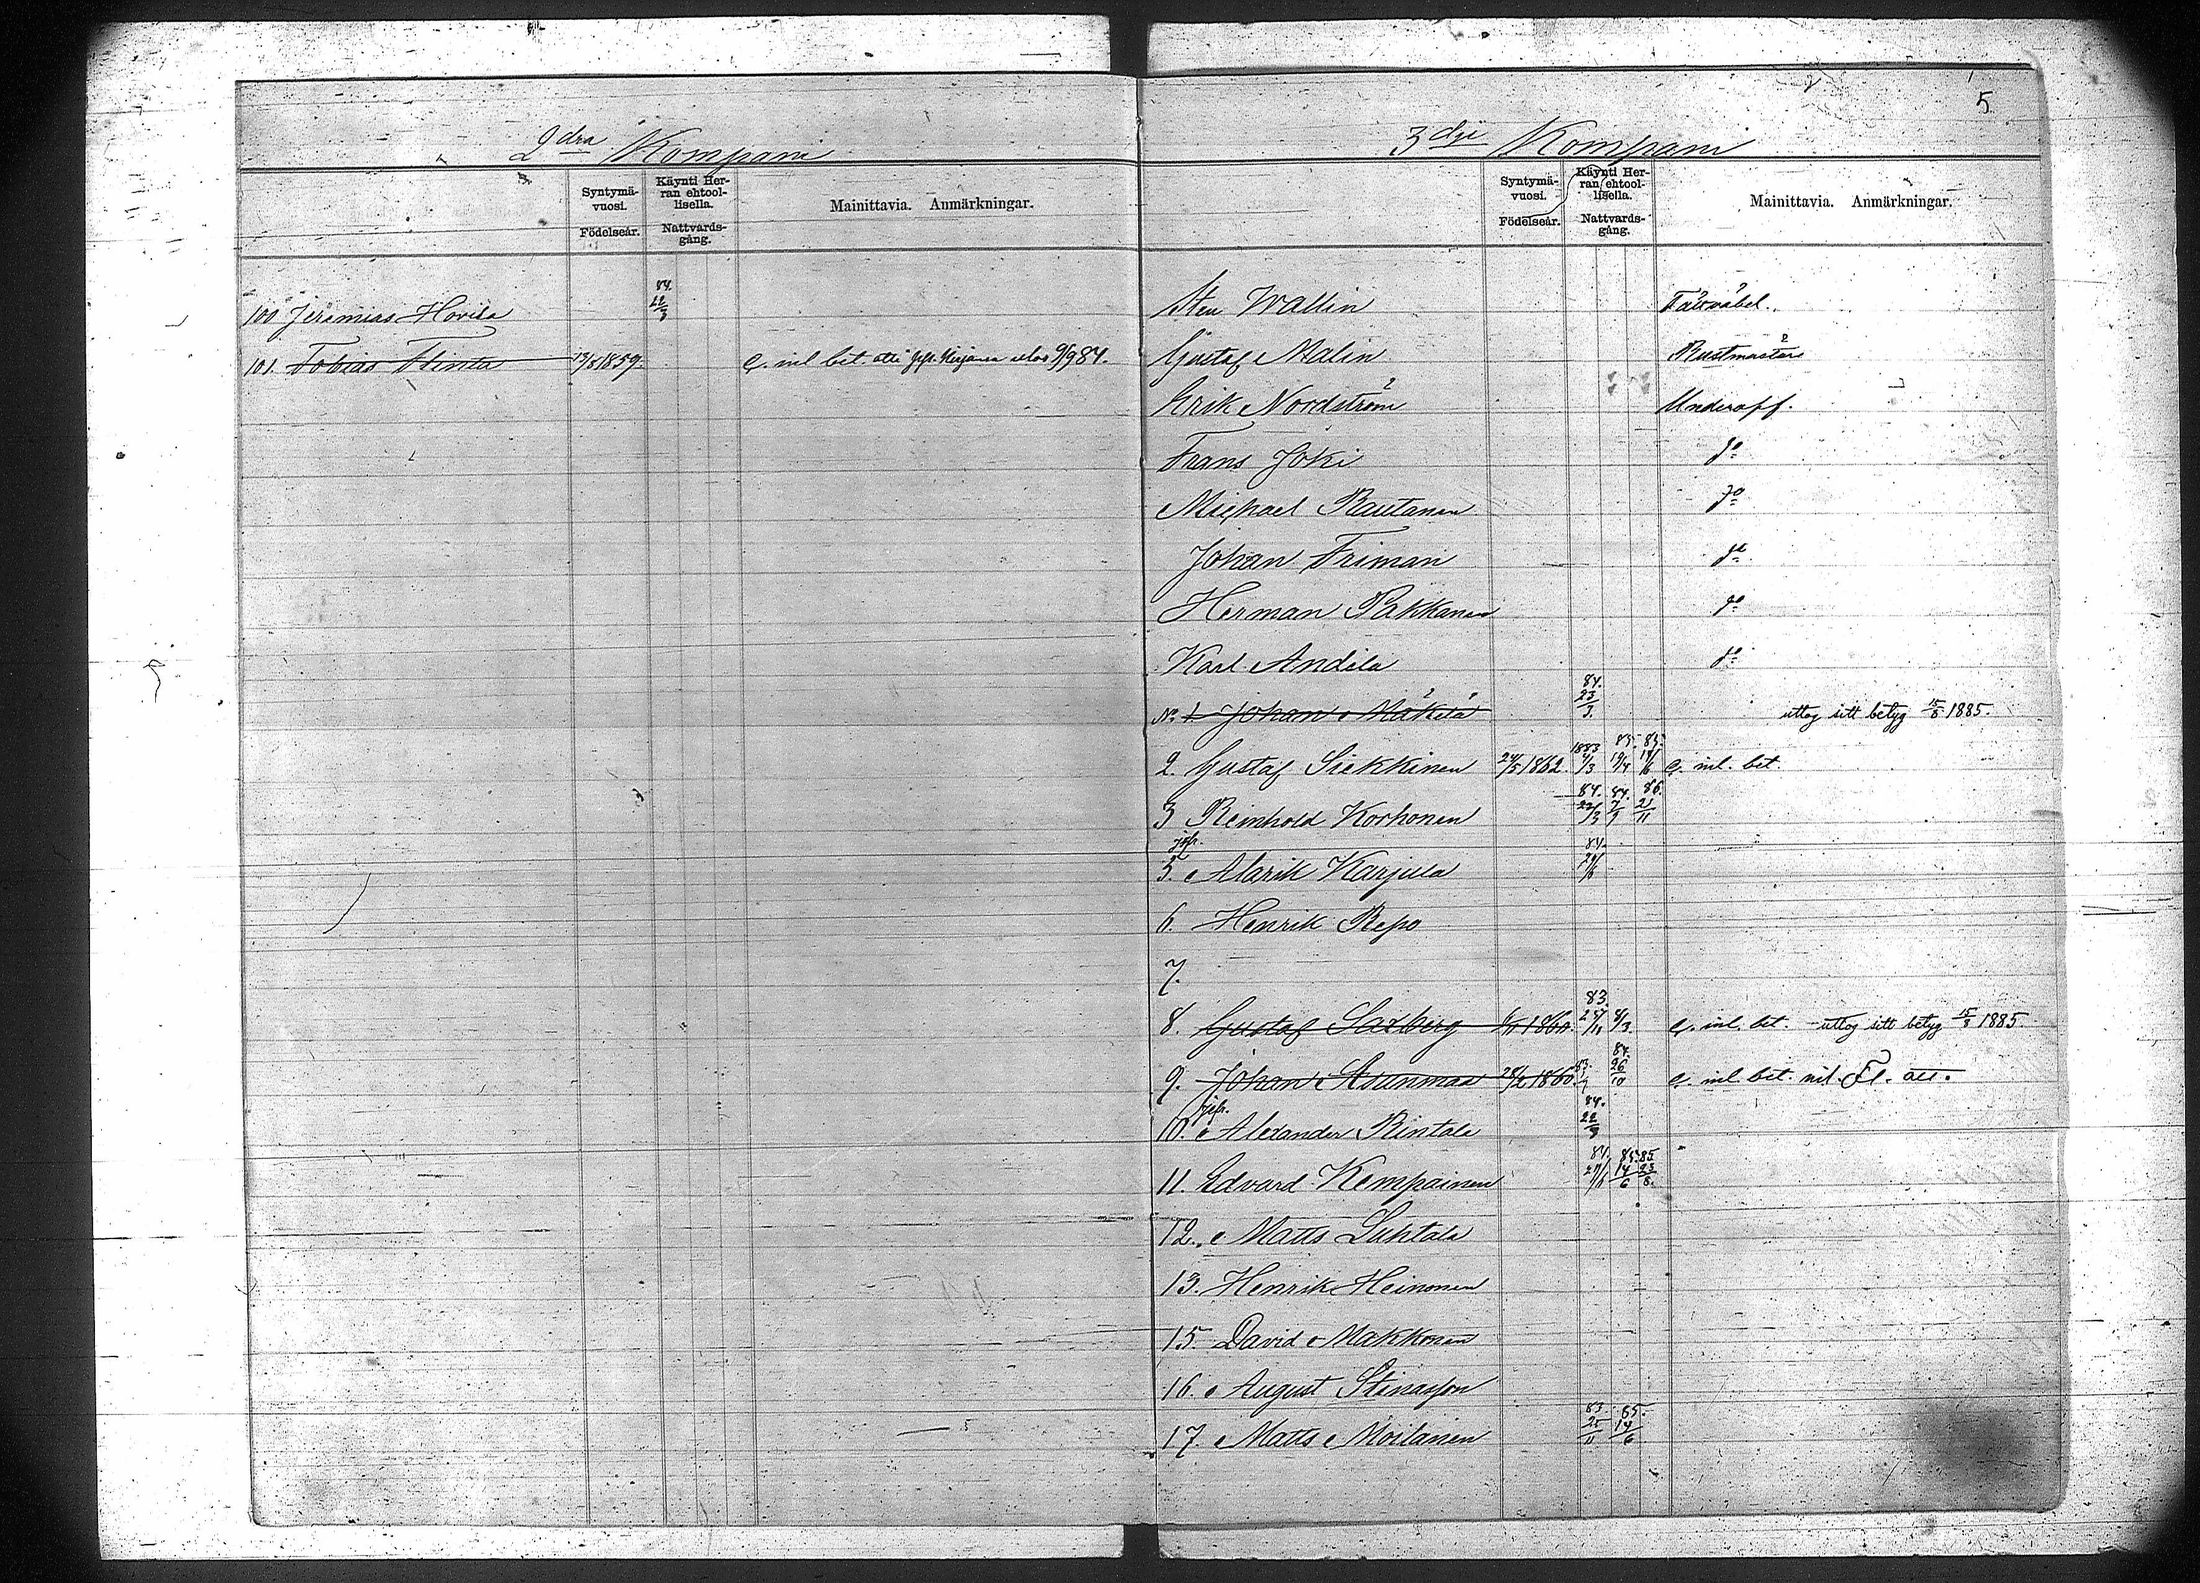 2dra Kompani
Syntymä-
vuosi.
Födelseår.
Käynti Her-
ran ehtool-
lisella.
Nattvards-
gång.
Mainittavia. Anmärkningar.
100 Jeremias Hovila 84. 22/3
101. Tobias Flinta 1859. 9/9 84.
5
3dje Kompani
Syntymä-
vuosi.
Födelseår.
Käynti Her-
ran ehtool-
lisella.
Nattvards-
gång.
Mainittavia. Anmärkningar.
Sten Wallin Fältväbel.
Gustaf Malin Rustmästare
Erik Nordström Underoff.
Frans Joki do
Michael Rautanen do
Johan Friman do
Herman Pakkanen do
Karl Andela do
No 1. Johan Mäkelä 84. 23/3. uttog sitt betyg 15/8 1885.
2. Gustaf Siekkinen 24/5 1862. 1883 e. inl. bet.
3 Reinhold Korhonen 84. 22/3 84. 7/9 86. 21/11
jefr.
5. Alarik Karjula 84.
6. Henrik Repo
7.
8. Gustaf Saxberg 1860. 83. 25/11 8/3. e. inl. bet. uttog sitt betyg 15/8 1885.
9. Johan Asunmaa 28/2 1860. 84. 26/10 e. inl. bet.
jefr.
10. Alexander Rintala 84. 22/3
11. Edvard Kempainen 84. 85. 14/6 85. 23/8.
12. Matts Luhtala
13. Henrik Heinonen
15. David Makkonen
16. August Stenasson
17. Matts Moilanen 83. 25/11 85. 14/6